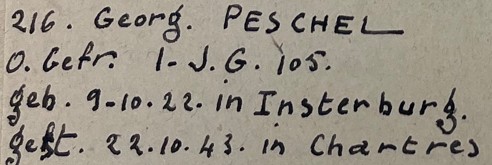 216. Georg. PESCHEL
O. Gefr. 1-J.G. 105.
geb. 9-10.22. in Insterburg.
gest. 22.10.43. in Chartres